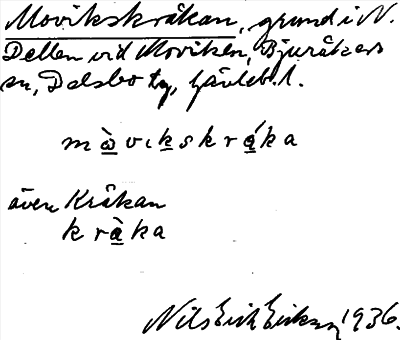 Movikskråkan, grund i N.
Dellen vid Moviken, Bjuråkers
sn, Delsbo tg, Gävleb. l.
mò̲vik̲skrá̲ka
även Kråkan
krà̲ka
Nils Erik Eriksson 1936.